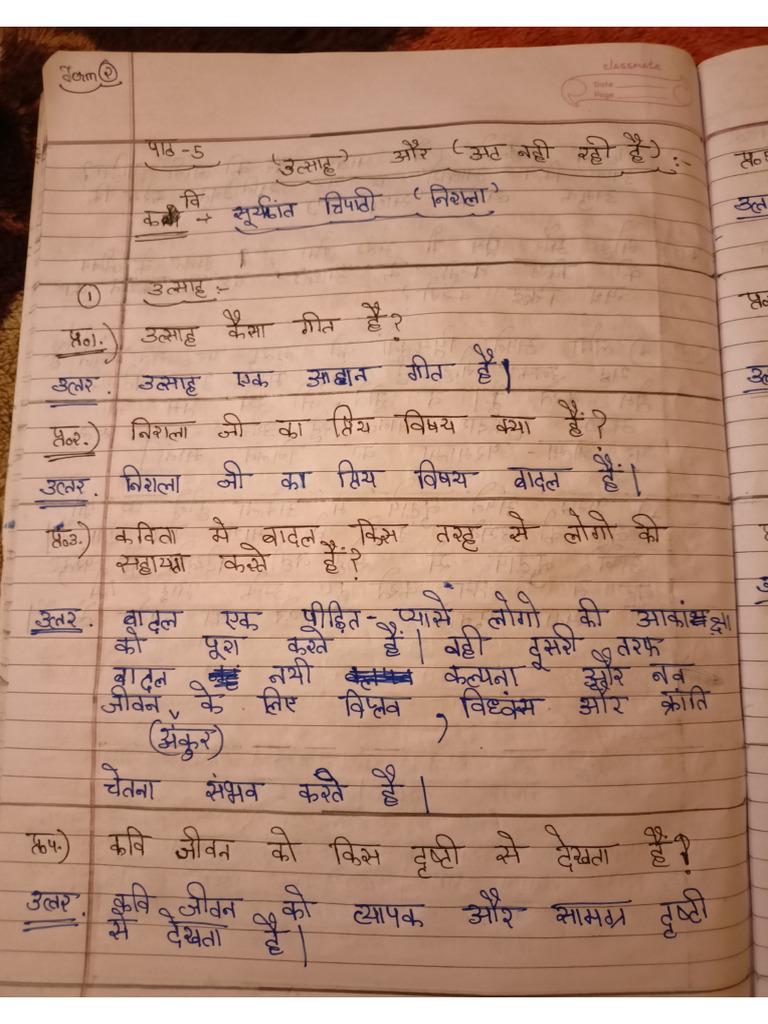 Term ②
classmate
Date
Page
पाठ-5 (उत्साह) और (अट नही रही है) :-
कवि → सूर्यकांत त्रिपाठी (निराला)
① उत्साह :-
प्र०1.) उत्साह कैसा गीत है?
उत्तर. उत्साह एक आह्वान गीत है|
प्र०2.) निराला जी का प्रिय विषय क्या है?
उत्तर. निराला जी का प्रिय विषय बादल हैं|
प्र०3.) कविता मे बादल किस तरह से लोगो की
सहायता करते हैं?
उत्तर. बादल एक पीड़ित-प्यासे लोगो की आकांक्षा
को पूरा करते हैं| वही दूसरी तरफ
बादल नयी कल्पना और नव
जीवन के लिए विप्लव, विध्वंस और क्रांति
(अंकुर)
चेतना संभव करते है|
प्र०4.) कवि जीवन को किस दृष्टी से देखता हैं?
उत्तर. कवि जीवन को व्यापक और सामग्र दृष्टी
से देखता है|
प्र०
उत्त